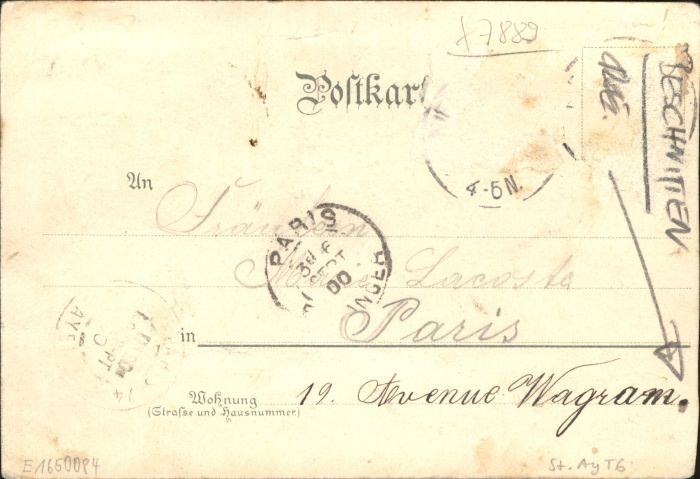 x7889
Postkar
BESCHNITTEN
4-5N.
An
Fräulein
PARIS
SEPT
00
Lacoste
in Paris
Wohnung
(Straße und Hausnummer)
19. Avenue Wagram.
E1650084
St. Ay T6